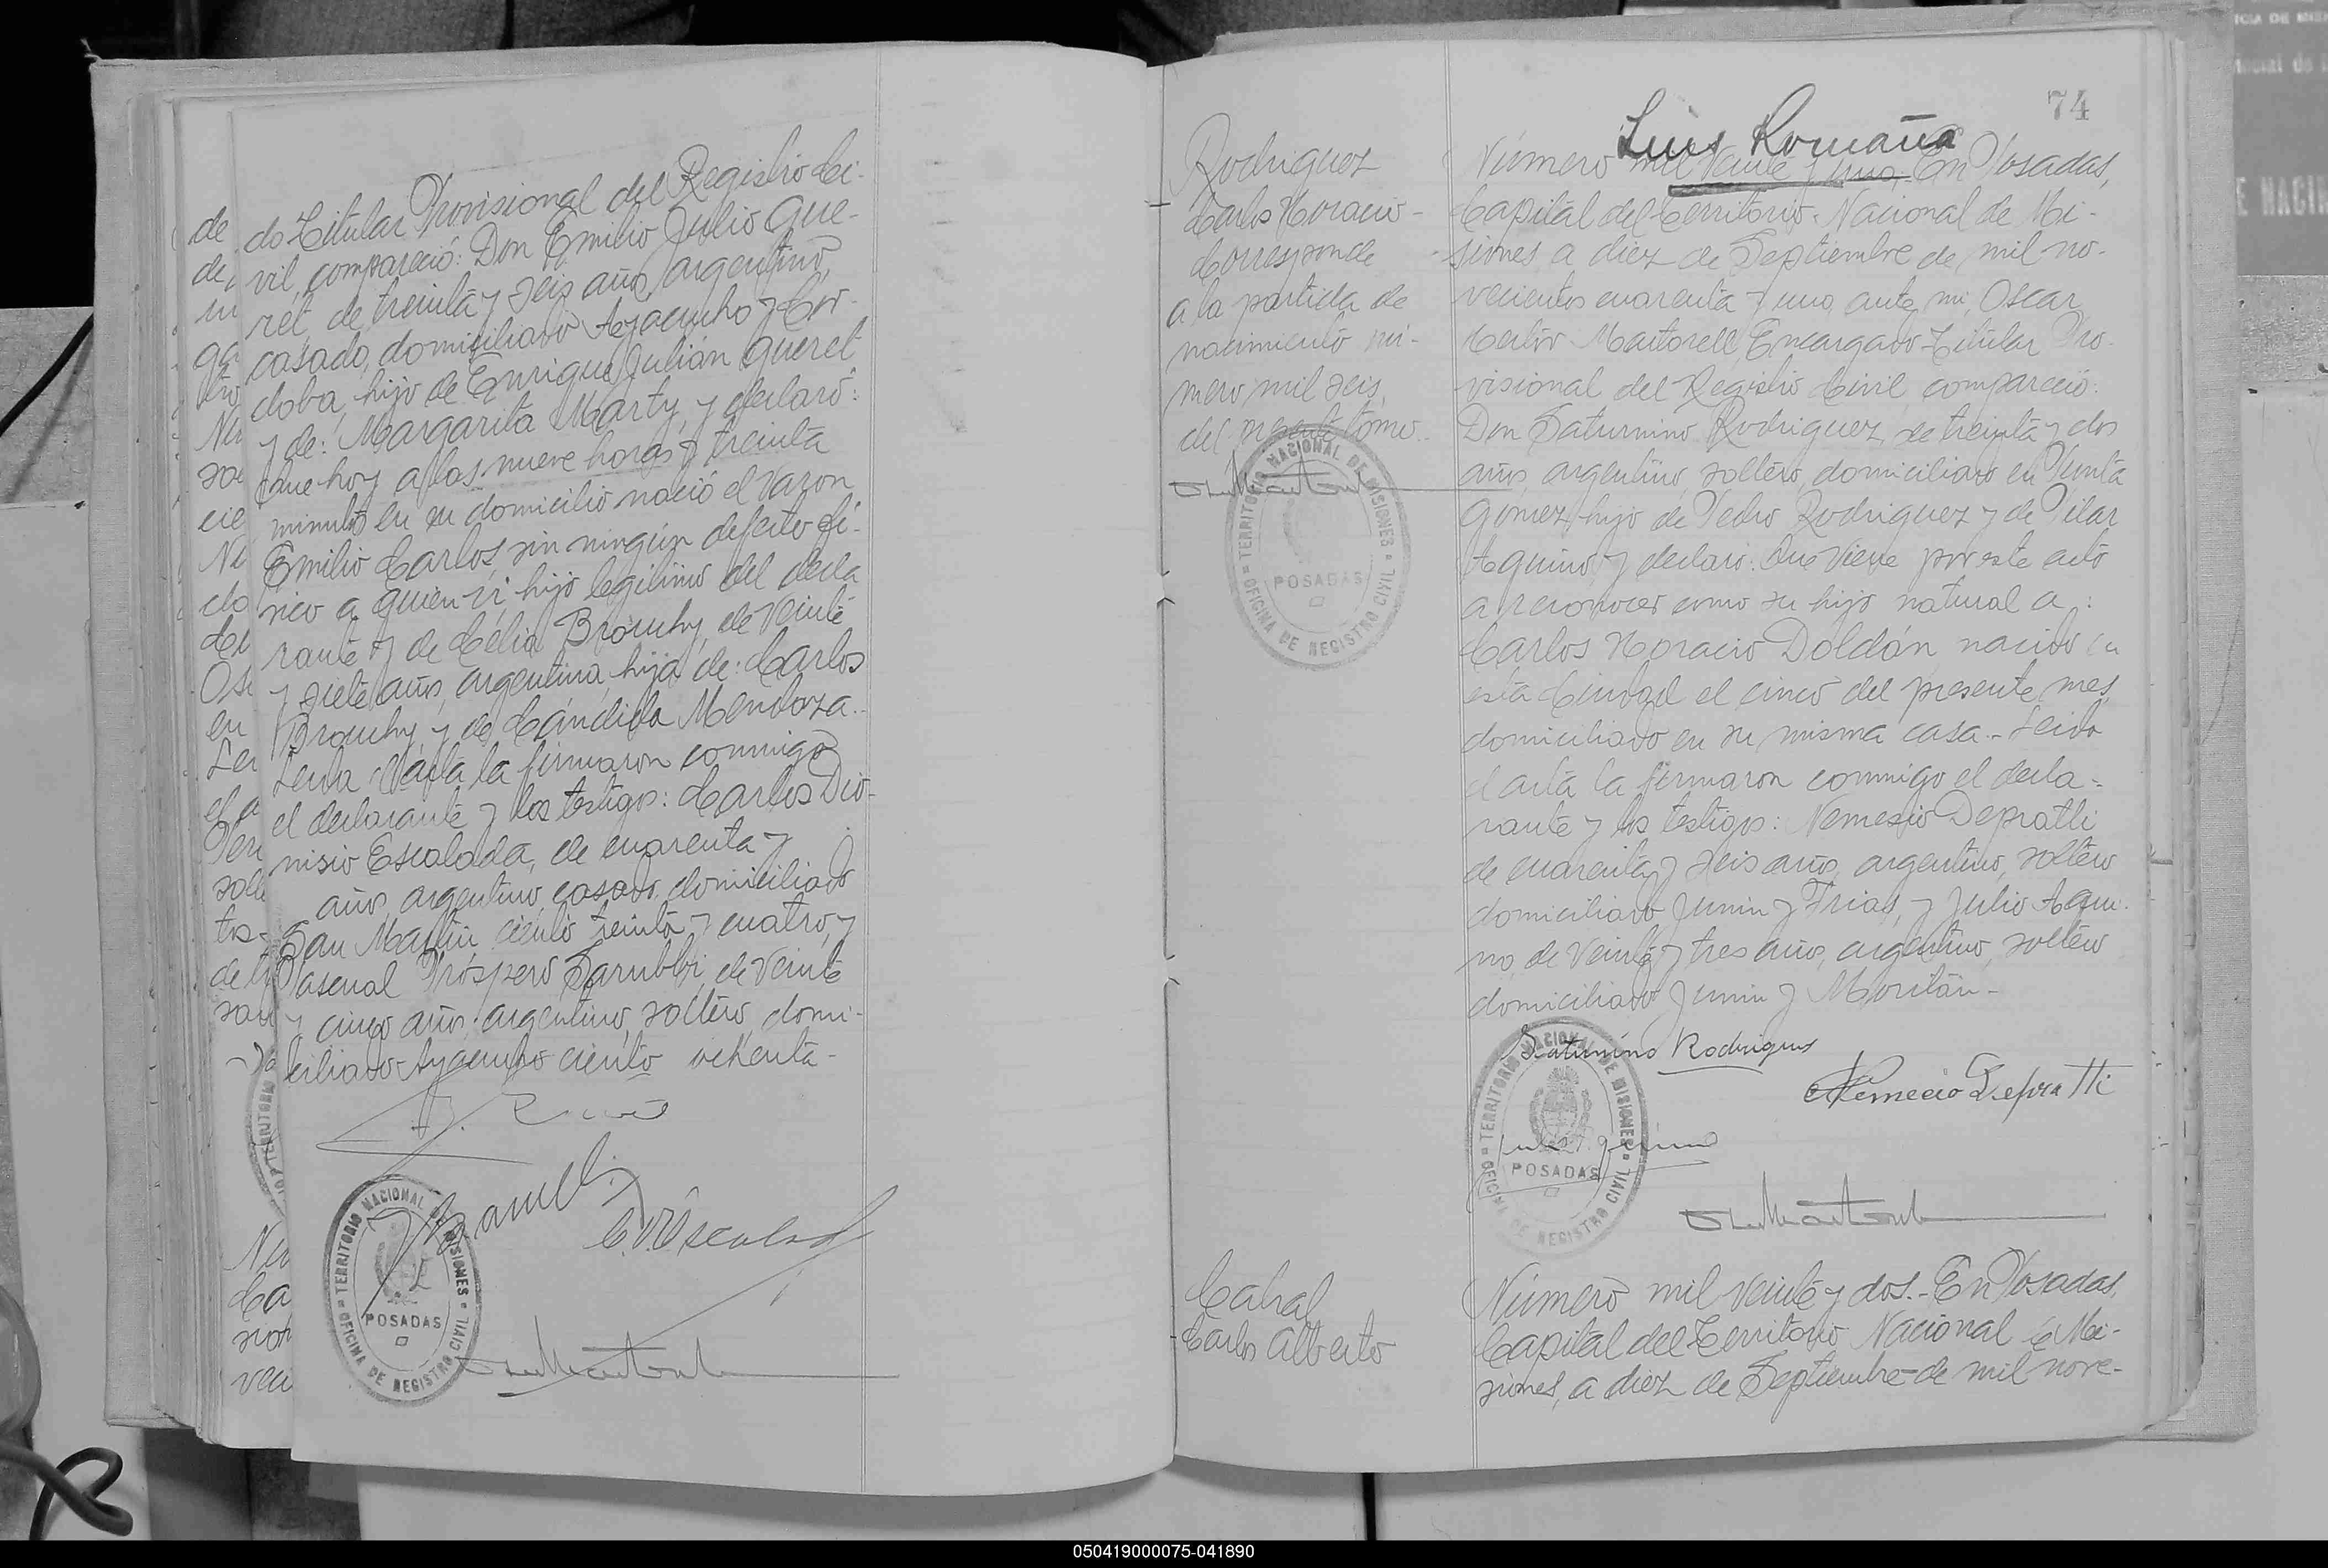 do Titular Provisional del Registro Ci-
vil, compareció: Don Emilio Julio Que-
ret, de treinta y seis años, argentino,
casado, domiciliado Ayacucho y Cór-
doba, hijo de Enrique Julián Queret
y de: Margarita Marty, y declaró:
Que hoy a las nueve horas y treinta
minutos en su domicilio nació el varon
Emilio Carlos, sin ningún defecto fí-
sico a quien vi, hijo legitimo del decla
rante y de Célia Brouchy, de veinte
y siete años, argentina, hija de: Carlos
Brouchy y de Cándida Mendoza.-
Leida el acta la firmaron conmigo
el declarante y los testigos: Carlos Dio-
nisio Escalada, de cuarenta y
años, argentino, casado, domiciliado
San Martin ciento treinta y cuatro, y
Pascual Próspero Sarubbi, de veinte
y cinco años, argentino, soltero, domi-
ciliado Ayacucho ciento ochenta-
TERRITORIO NACIONAL DE MISIONES
POSADAS
OFICINA DE REGISTRO CIVIL
C. D. Escalada
74
Luis Romaña
Rodriguez
Carlos Horacio-
Corresponde
a la partida de
nacimiento nú-
mero mil seis,
del presente tomo.
TERRITORIO NACIONAL DE MISIONES
POSADAS
OFICINA DE REGISTRO CIVIL
Número mil veinte y uno.- En Posadas,
Capital del Territorio Nacional de Mi-
siones a diez de Septiembre de mil no-
vecientos cuarenta y uno, ante mi, Oscar
Martorell, Encargado Titular Pro-
visional del Registro Civil, compareció:
Don Saturnino Rodriguez, de treinta y dos
años, argentino, soltero, domiciliado en Punta
Gómez, hijo de Pedro Rodriguez y de Pilar
Aquino, y declaró: Que viene por este acto
a reconocer como su hijo natural a:
Carlos Horacio Doldán, nacido en
esta Ciudad el cinco del presente mes,
domiciliado en su misma casa.- Leida
el acta la firmaron conmigo el decla-
rante y los testigos: Nemesio Depratti
de cuarenta y seis años, argentino, soltero
domiciliado Junin y Frias, y Julio Aqui-
no, de veinte y tres años, argentino, soltero
domiciliado Junin y Moritán-
Saturnino Rodriguez
Nemecio Depratti
Julio Aquino
TERRITORIO NACIONAL DE MISIONES
POSADAS
OFICINA DE REGISTRO CIVIL
Cabral
Carlos Alberto
Número mil veinte y dos.- En Posadas,
Capital del Territorio Nacional de Mi-
siones, a diez de Septiembre de mil nove-
050419000075-041890